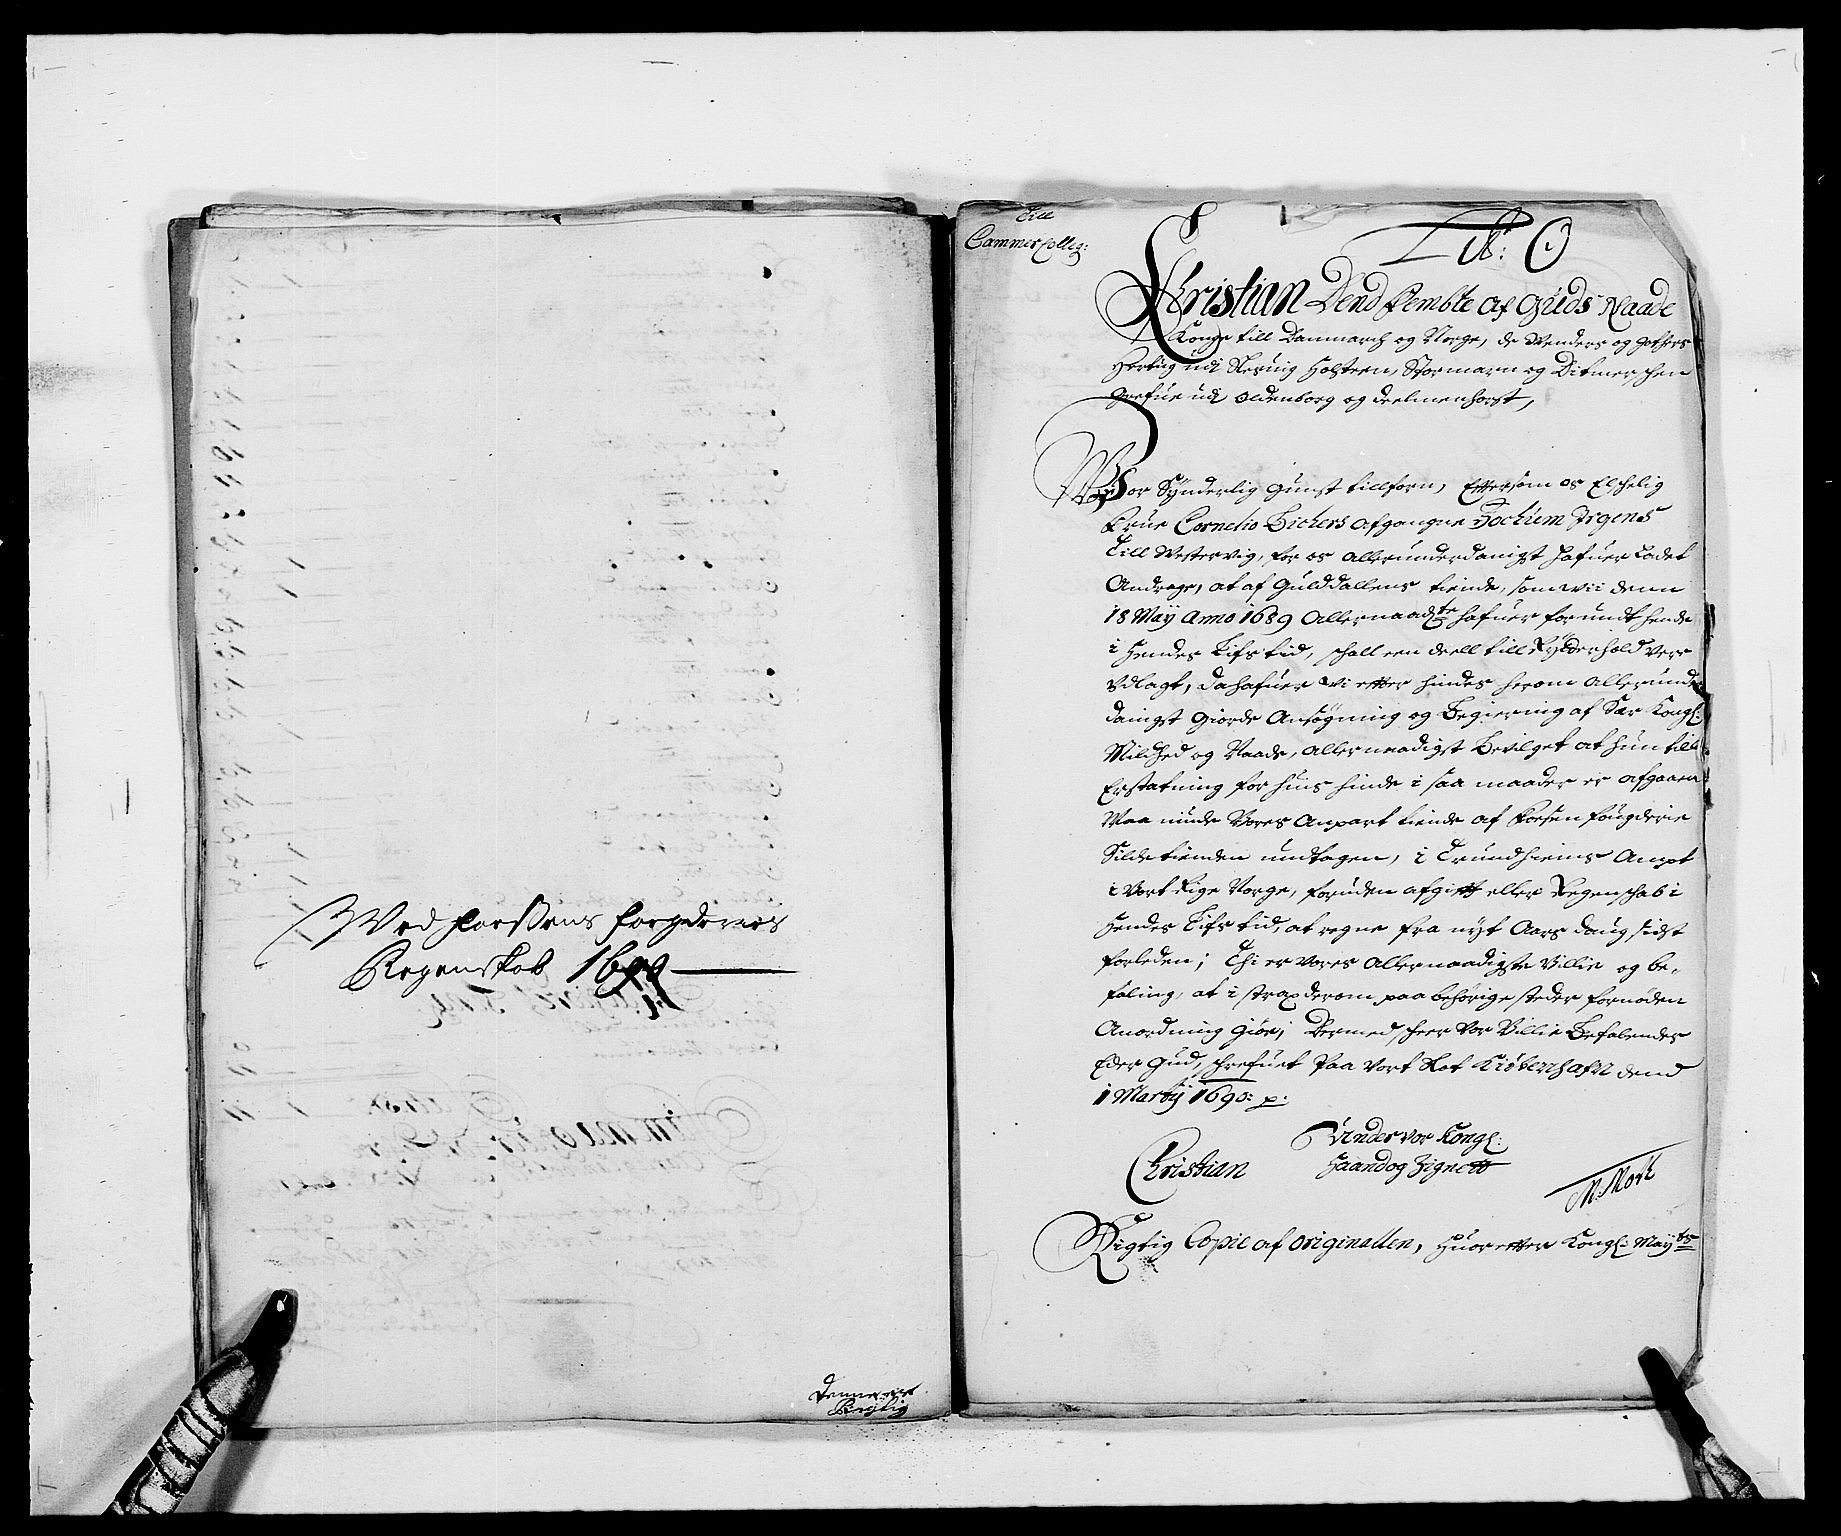 Wed forssens fogderies
Regenskab 1690
Till
Cammer Colleg:
Lit: C
Christian Dend Fembte af Guds Naade
Konge till Danmarch og Norge, de Wenders og Gothers
Hertug udi Slesvig Holsteen, Stormarn og Ditmerschen
Grefue udi Oldenborg og Delmenhorst,
Vor Sÿnderlig Gunst tillforn, Eftersom os Elschelig
Frue Cornelio Bichers afgangne Jochum Irgens
Till Westervig, for os allerunderdanigst hafuer ladet
Andrage, at af Gulddallens tiende, som wii denn
18 Maÿ Anno 1689 Allernaadste hafuer forundt hende
i Hendes Lifs tid, schall een deell till Rÿtterhold vere
Udlagt, da hafuer wi efter hindes herom allerunder
danigst Giorde Ansøgning og Begiering af Sær Kongl:
Mildhed og Naade, allernaadigst Bevilget at hun till
Erstatning for huis hinde i saa maader er afgaaen
Maa niude Vores Anpart tiende af Forsen fougderie
Silde tienden undtagen, i Trundhiems Ampt
i Vort Rige Norge, foruden afgift eller Regenschab i
Hendes Lifs tid, at regne fra nÿt Aars daug sidst
forleden; Thi er Vores Allernaadigste Villie og be-
faling, at i strax derom paa behörige steder fornöden
Anordning giør; Dermed scheer Vor Villie Befalendes
Eder Gud, Schrefuet Paa Vort Slot Kiøbenhafn dend
1 Martÿ 1690: p.
Under vor Kongl:
Christian Haand og Zignett
M: Moth
Rigtig Copie af originallen, Huor efter Kongl: Maÿts
Rigtig